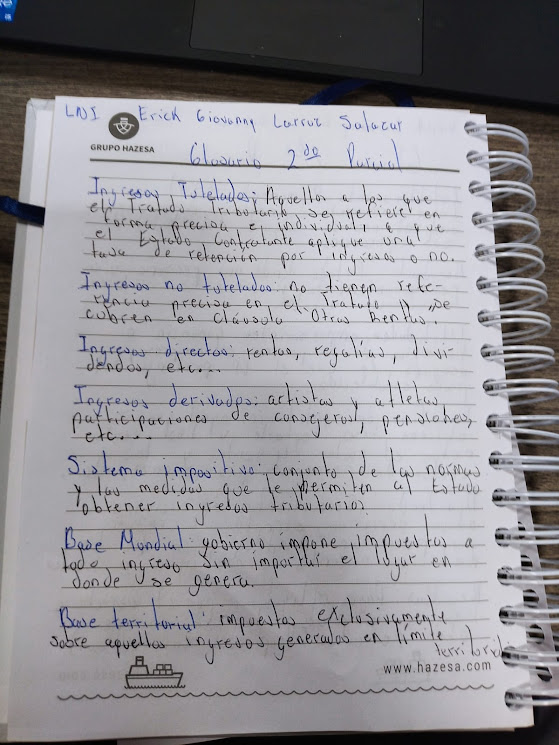 LNI Erick Giovanny Larruz Salazar
GRUPO HAZESA
Glosario 2do Parcial
Ingresos Tutelados: Aquellos a los que
el Tratado Tributario se refiere en
forma precisa e individual, a que
el Estado Contratante aplique una
tasa de retención por ingresos o no.
Ingresos no tutelados: no tienen refe-
rencia precisa en el Tratado, se
cubren en Cláusula "Otras Rentas".
Ingresos directos: rentas, regalías, divi-
dendos, etc...
Ingresos derivados: artistas y atletas,
participaciones de consejeros, pensiones,
etc....
Sistema impositivo: conjunto de las normas
y las medidas que le permiten al Estado
obtener ingresos tributarios.
Base Mundial: gobierno impone impuestos a
todo ingreso sin importar el lugar en
donde se genera.
Base territorial: impuestos exclusivamente
sobre aquellos ingresos generados en límite
territorial
www.hazesa.com